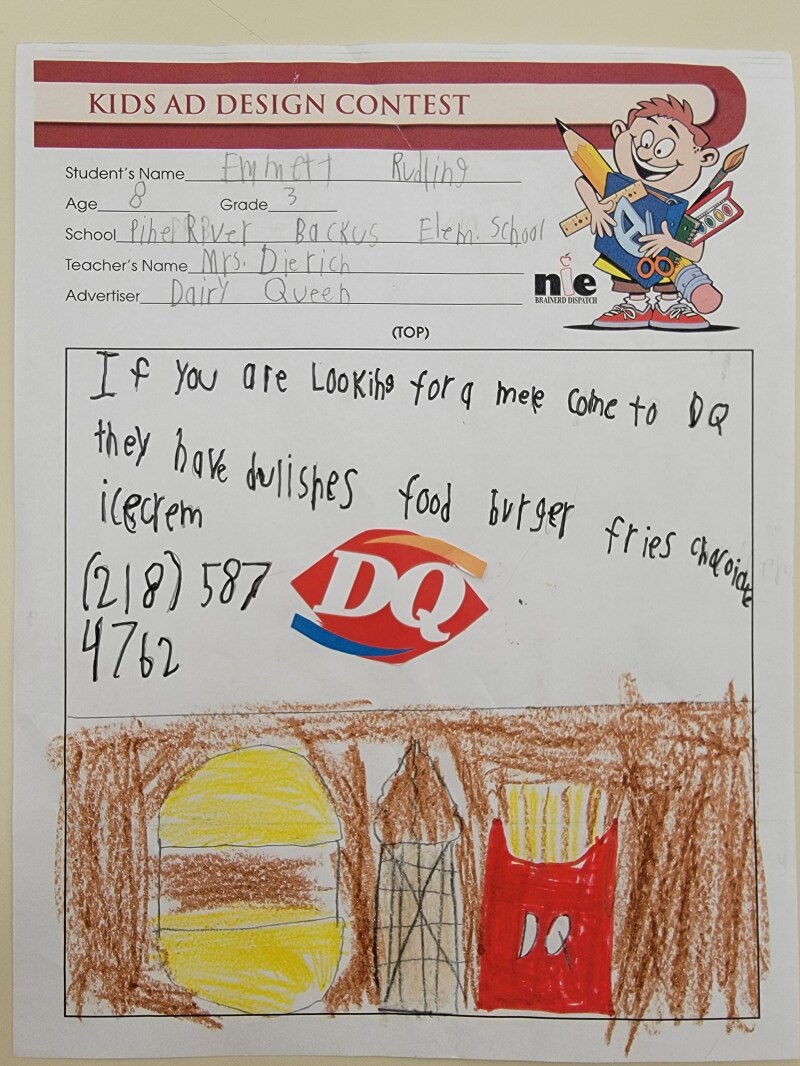 KIDS AD DESIGN CONTEST
Student's Name Emmett Rudling
Age 8 Grade 3
School Pine River Backus Elem. School
Teacher's Name Mrs. Dierich
Advertiser Dairy Queen
nie
BRAINERD DISPATCH
(TOP)
If you are Looking for a mele come to DQ
they have dulishes food burger fries chacolate
icecrem
(218) 587
4762
DQ
DQ